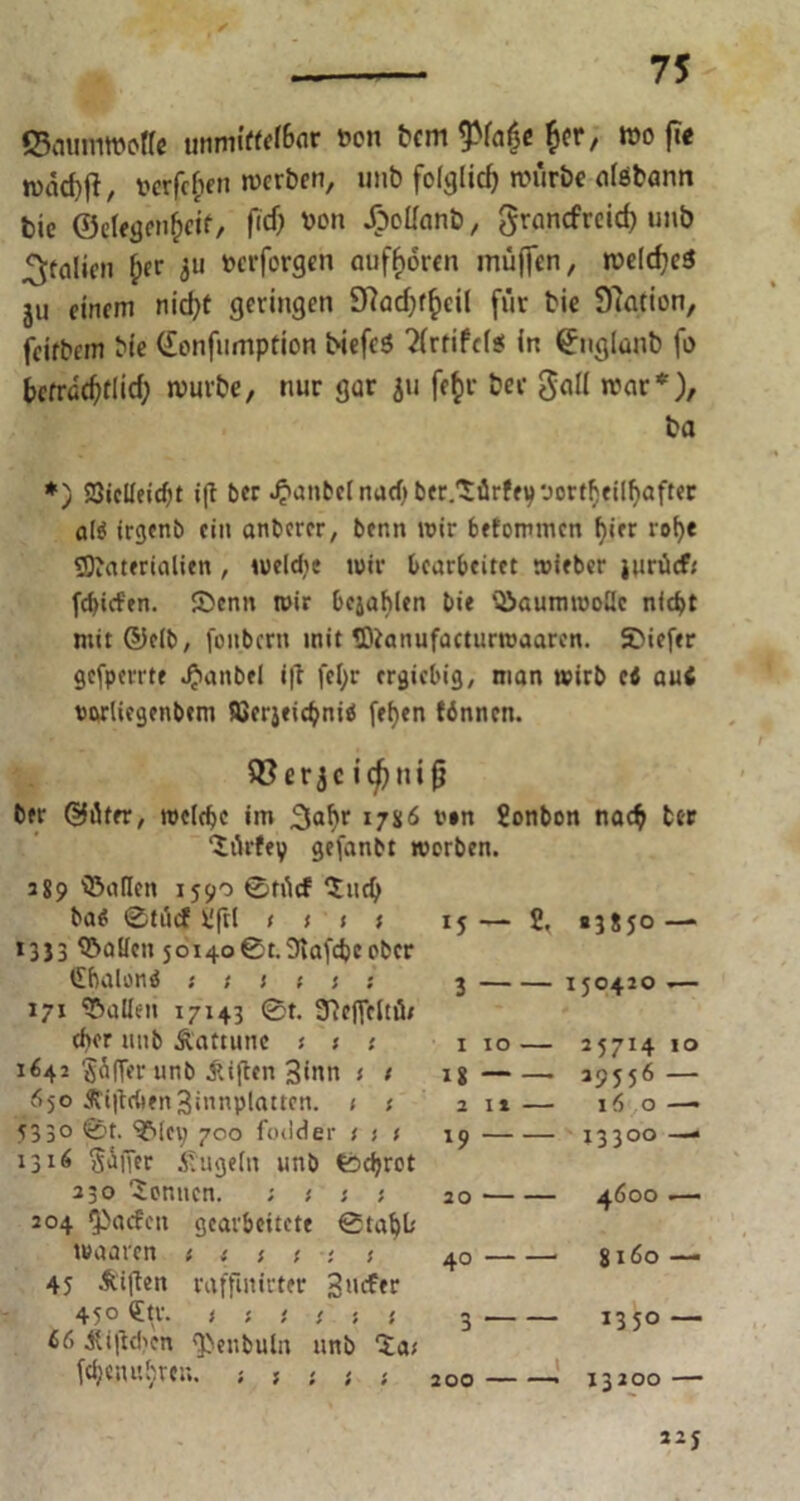 75
Baumwolle unmittelbar von dem Platze her, wo sie
wächst, versehen werden, und folglich würde alsdann
die Gelegenheit, sich von Holland, Franckreich und
Italien her zu versorgen aufhören müssen, welches
zu einem nicht geringen Nachtheil für die Nation,
seitdem die Consumption dieses Artikels in England so
beträchtlich wurde, nur gar zu sehr der Fall war*),
da
*) Vielleicht ist der Handel nach der Türkey vortheilhafter
als irgend ein anderer, denn wir bekommen hier rohe
Materialien, welche wir bearbeitet wieder zurück-
schicken. Denn wir bezahlen die Baumwolle nicht
mit Geld, sondern mit Manufacturwaaren. Dieser
gesperrte Handel ist sehr ergiebig, man wird es aus
vorliegendem Verzeichnis sehen können.
Verzeichniß
der Güter, welche im Jahr 1786 von London nach der
Türkey gesandt worden.
289 Ballen 1590 Stück Tuch
das Stück Lstl - - - - 15 — L. 23850 —
1333 Ballen 50140 St. Rasche oder
Chalons - - - - - - 3 — — 150420 —
171 Ballen 17143 St. Nesseltü-
cher und Kattune - - - 1 10 — 25714 10
1642 Fässer und Kisten Zinn - - 18 — — 29556 —
650 Kistchen Zinnplatten. - - 2 12 — 16 0 —
5330 St. Bley 700 fodder - - - 19 — — 13300 —
1316 Fässer Kugeln und Schrot
230 Tonnen. - - - - 20 — — 4600 —
204 Packen gearbeitete Stahl-
waaren - - - - - - 40 — — 8160 —
45 Kisten raffinirter Zucker
450 Ctr. - - - - - - 3 — — 1350 —
66 Kistchen Penduln und Ta-
schenuhren. - - - - - 200 — — 13200 —
225